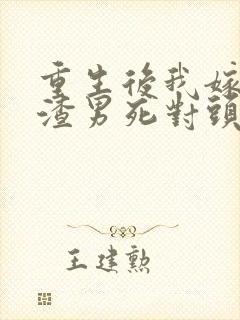 重生後我嫁
渣男死對頭
王建勲